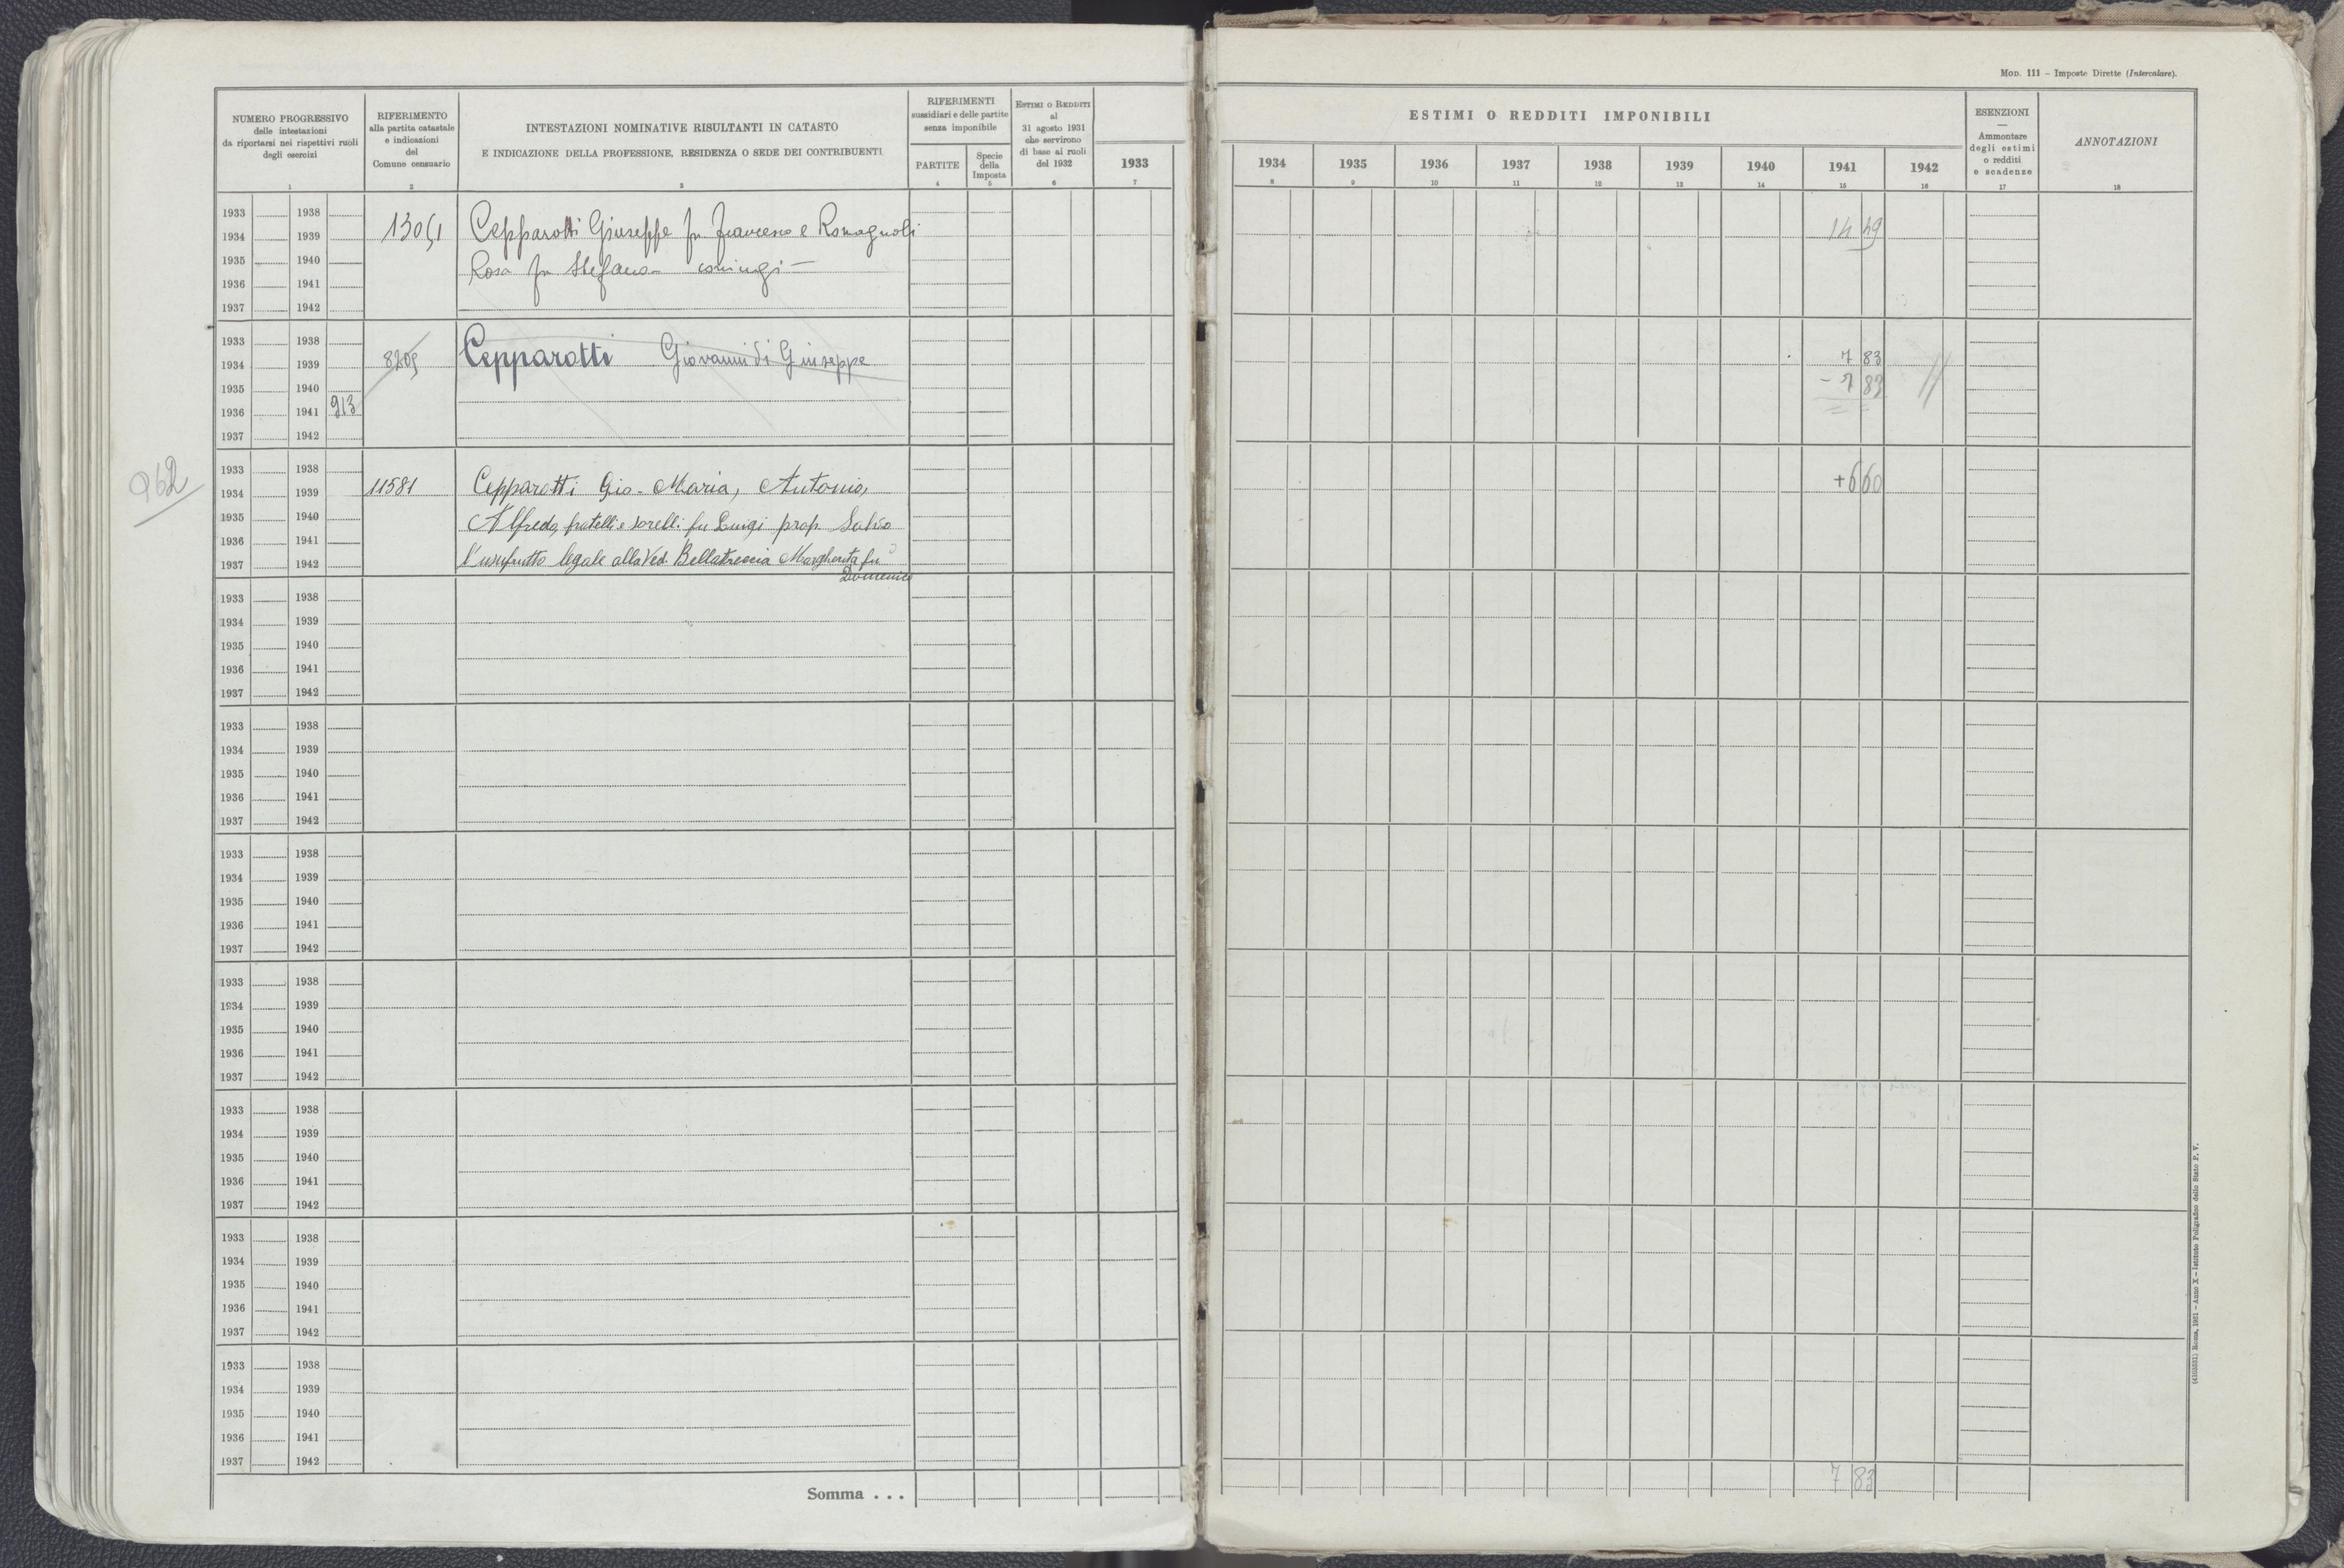 Mod. 111 – Imposte Dirette (Intercalare).
NUMERO PROGRESSIVO
delle intestazioni
da riportarsi nei rispettivi ruoli
degli esercizi
1
RIFERIMENTO
alla partita catastale
e indicazioni
del
Comune censuario
2
INTESTAZIONI NOMINATIVE RISULTANTI IN CATASTO
E INDICAZIONE DELLA PROFESSIONE, RESIDENZA O SEDE DEI CONTRIBUENTI
3
RIFERIMENTI
sussidiari e delle partite
senza imponibile
PARTITE
4
Specie
della
Imposta
5
Estimi o Redditi
al
31 agosto 1931
che servirono
di base ai ruoli
del 1932
6
1933
7
ESTIMI O REDDITI IMPONIBILI
1934 1935 1936 1937 1938 1939 1940 1941 1942
8 9 10 11 12 13 14 15 16
ESENZIONI
—
Ammontare
degli estimi
o redditi
e scadenze
17
ANNOTAZIONI
18
1933 1938
1934 1939 Cepparotti Giuseppe fu Francesco e Romagnoli 14 49
1935 1940 Rosa fu Stefano - coniugi —
1936 1941
1937 1942
1933 1938
1934 1939 8209 Cepparotti Giovanni di Giuseppe 7 83
1935 1940 - 7 83
1936 1941 913
1937 1942
962
1933 1938
1934 1939 11581 Cepparotti Gio-Maria, Antonio, +6 60
1935 1940 Alfredo, fratelli e sorelli fu Luigi prop. Salvo
1936 1941
1937 1942 l'usufrutto legale alla Ved. Bellatreccia Margherita fu
Domenico
1933 1938
1934 1939
1935 1940
1936 1941
1937 1942
1933 1938
1934 1939
1935 1940
1936 1941
1937 1942
1933 1938
1934 1939
1935 1940
1936 1941
1937 1942
1933 1938
1934 1939
1935 1940
1936 1941
1937 1942
1933 1938
1934 1939
1935 1940
1936 1941
1937 1942
1933 1938
1934 1939
1935 1940
1936 1941
1937 1942
1933 1938
1934 1939
1935 1940
1936 1941
1937 1942
Somma . . . 7 83
(4103531) Roma, 1931 – Anno X – Istituto Poligrafico dello Stato P. V.